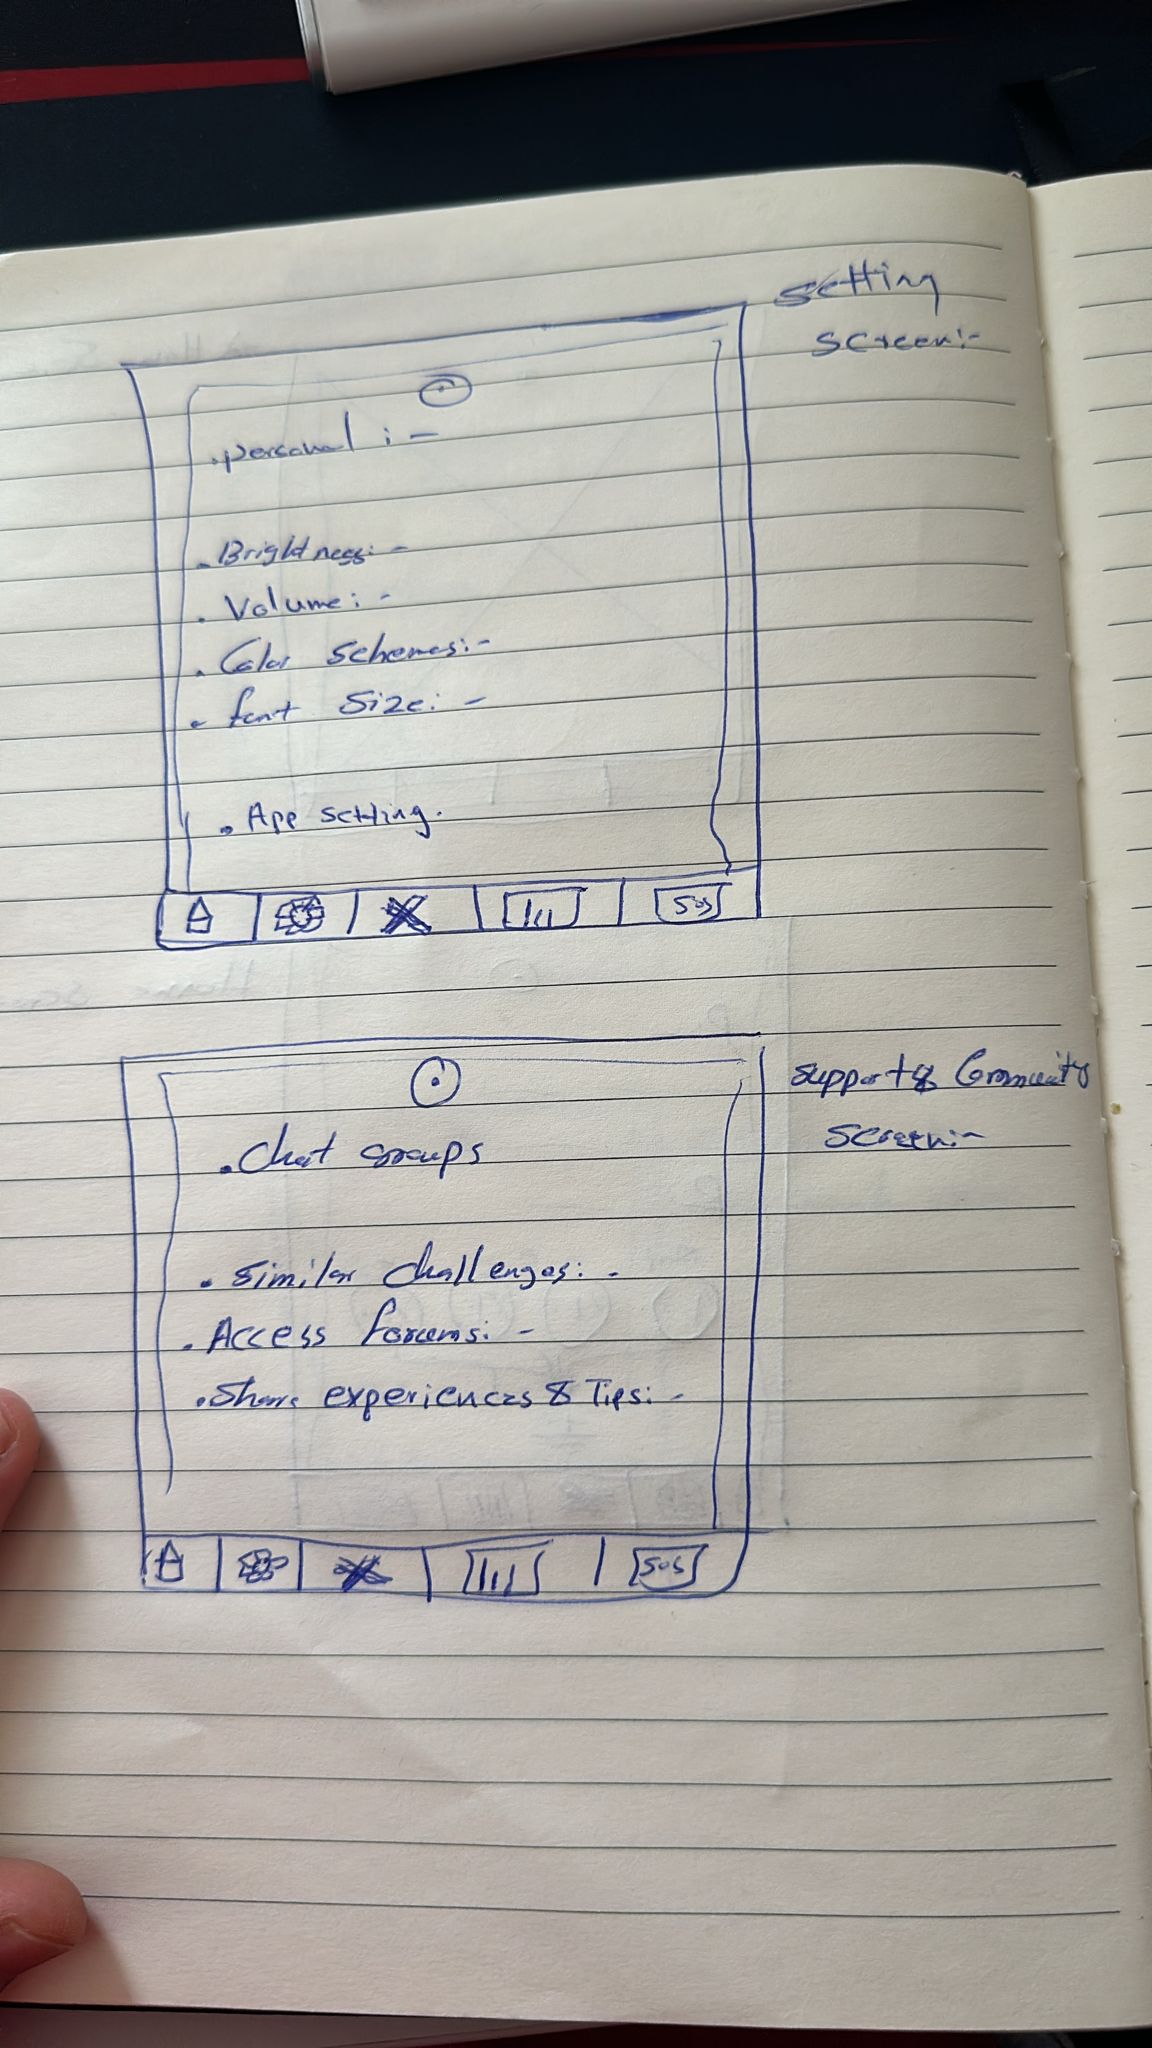 Setting
Screen:-
. personal :-
. Brightness:-
. Volume:-
. Color Schemes:-
. font Size:-
. App setting.
SOS
Support & Community
Screen:-
. Chat Groups
. Similar Challenges:-
. Access forums:-
. Share experiences & Tips:-
SOS